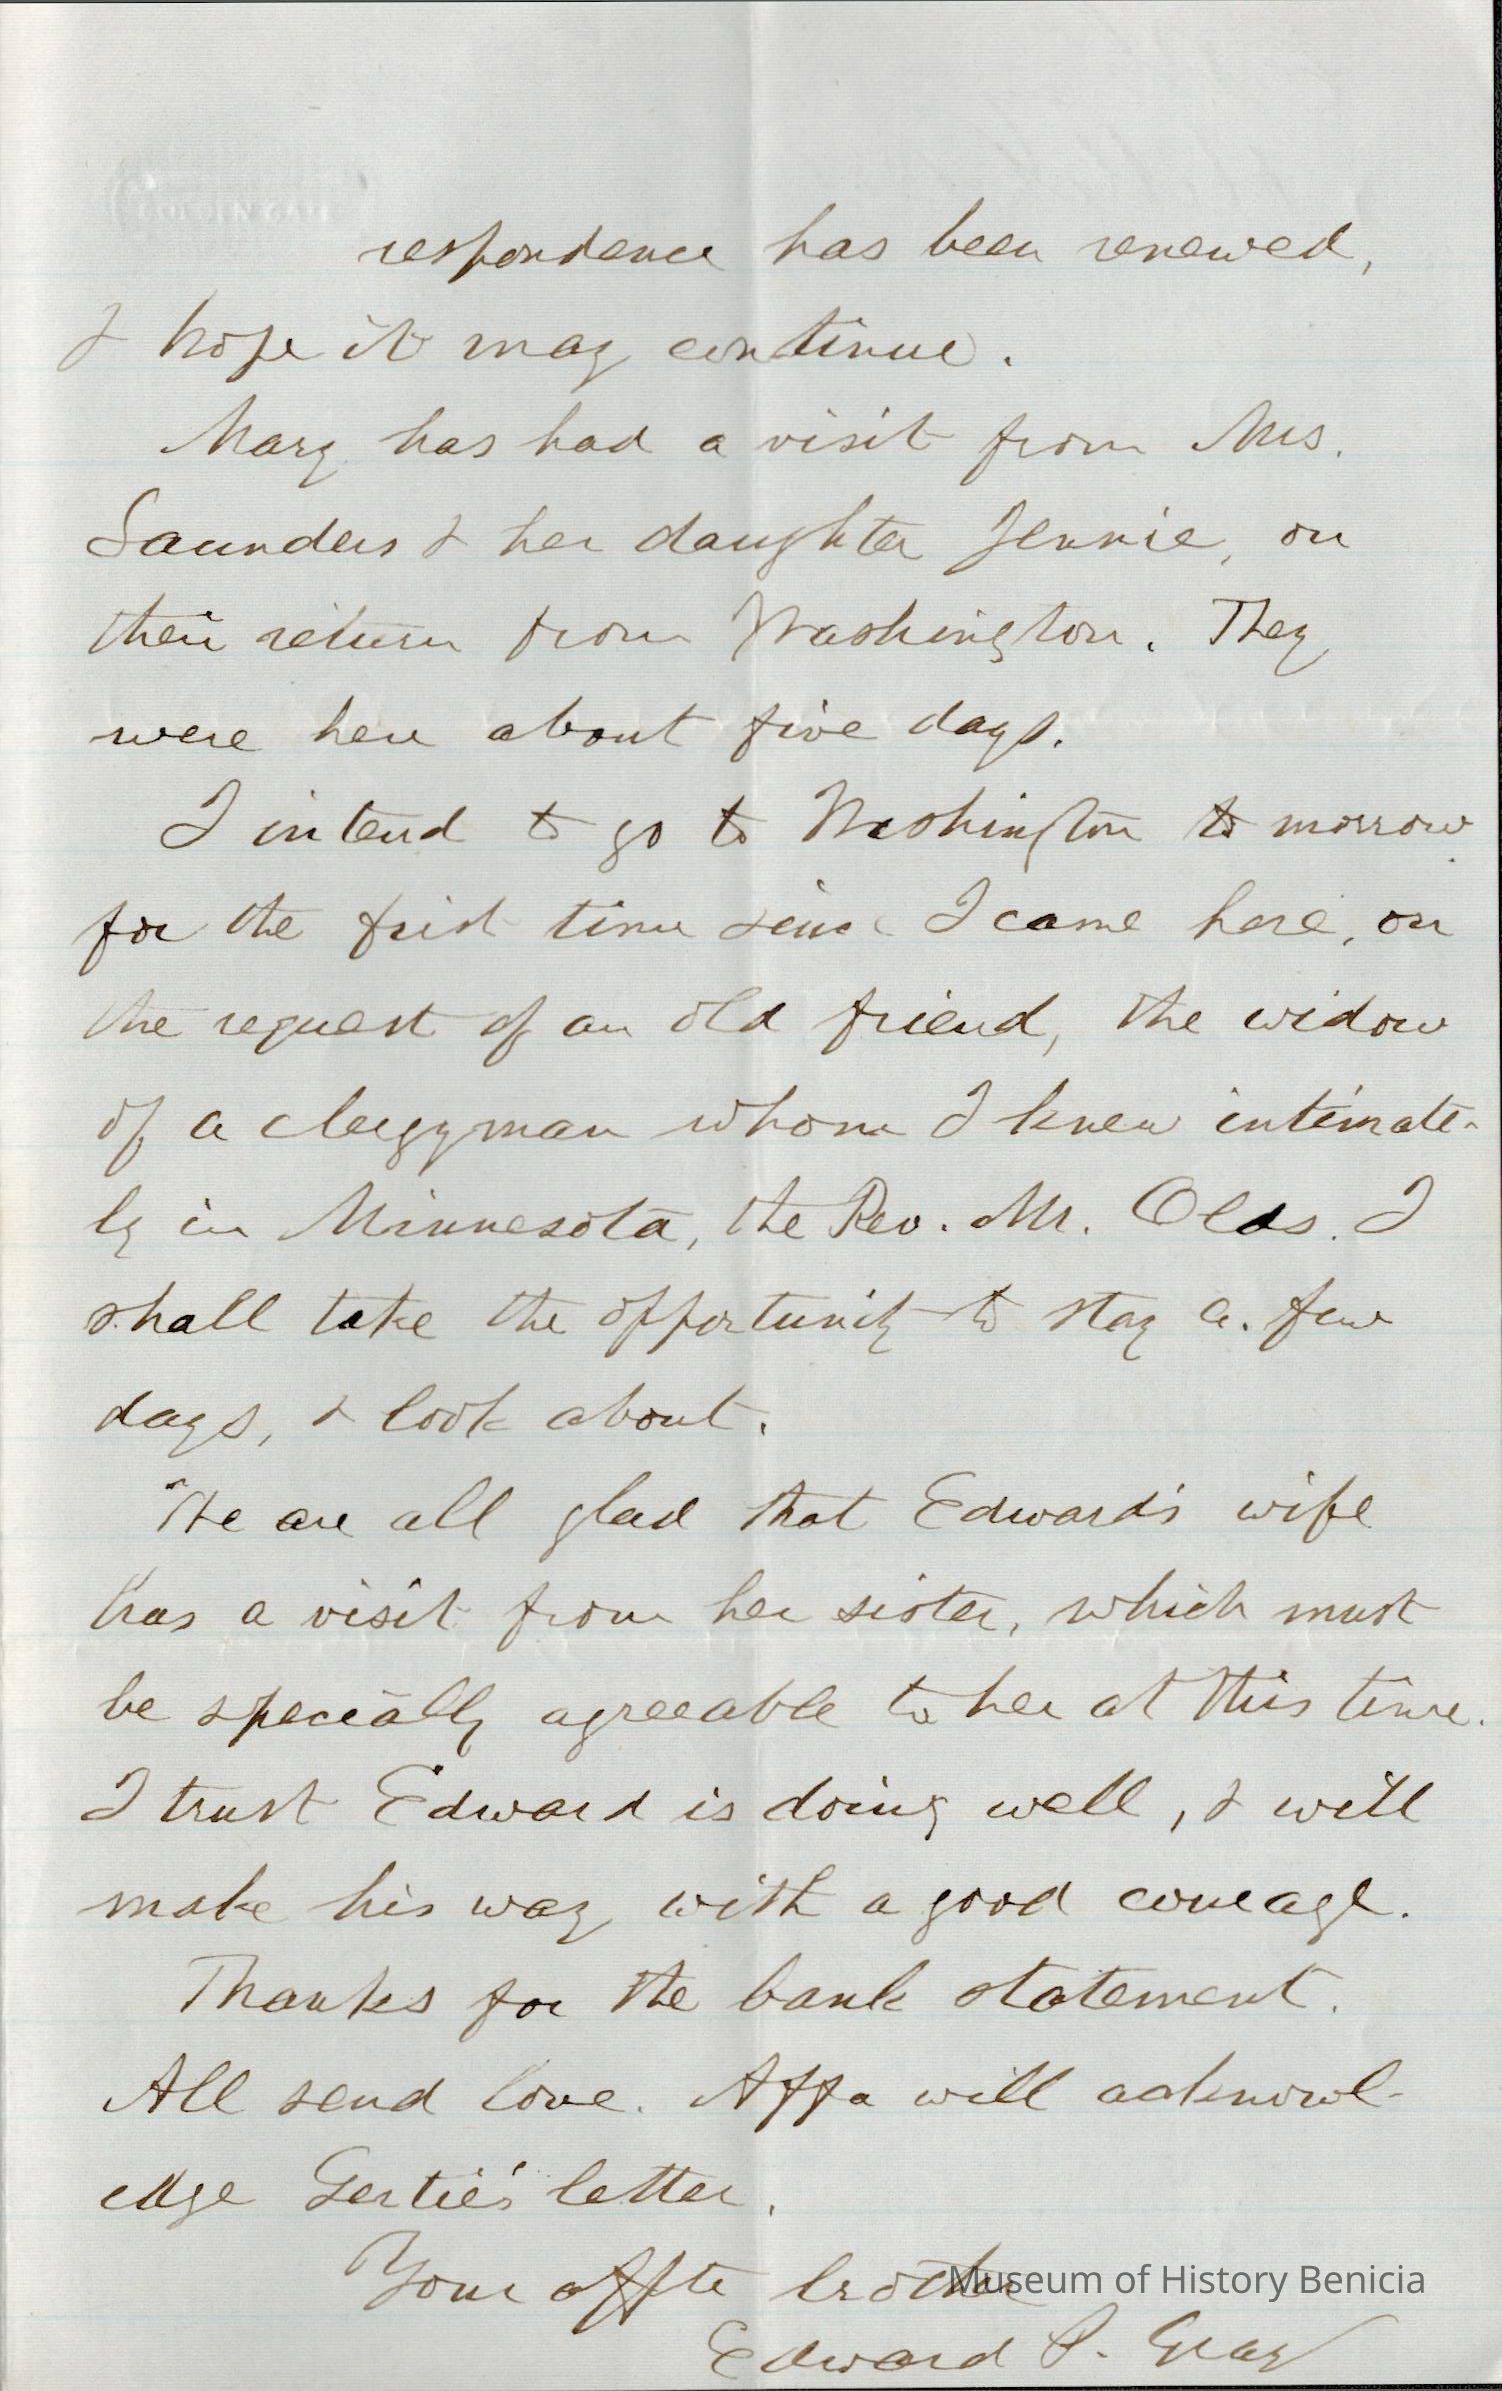 GOLDEN GATE
respondence has been renewed,
I hope it may continue.
Mary has had a visit from Mrs.
Saunders & her daughter Jennie, on
their return from Washington. They
were here about five days.
I intend to go to Washington to morrow
for the first time since I came here, on
the request of an old friend, the widow
of a clergyman whom I knew intimate-
ly in Minnesota, the Rev. Mr. Olds. I
shall take the opportunity to stay a few
days, & look about.
We are all glad that Edward's wife
has a visit from her sister, which must
be specially agreeable to her at this time.
I trust Edward is doing well, & will
make his way with a good courage.
Thanks for the bank statement.
All send love. Affa will acknowl-
edge Gertie's letter.
Your affte brother
Museum of History Benicia
Edward P. Gray